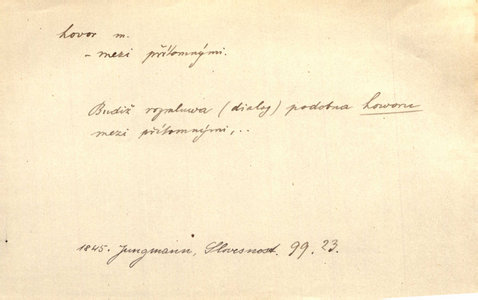 hovor m.
– mezi přítomnými.
Budiž rozmluwa (dialog) podobna howoru
mezi přítomnými,..
1845. Jungmann, Slovesnost. 99. 23.